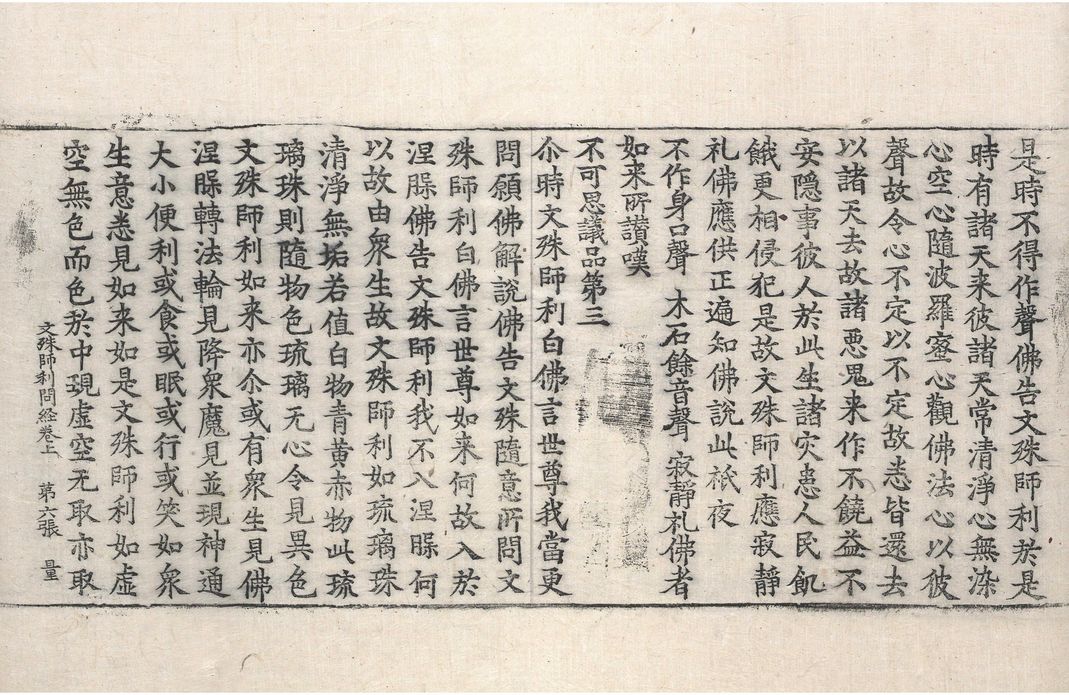 是時不得作聲佛告文殊師利於是
時有諸天来彼諸天常清淨心無染
心空心隨波羅蜜心觀佛法心以彼
聲故令心不定以不定故悉皆還去
以諸天去故諸悪鬼来作不饒益不
安隱事彼人於此生諸灾患人民飢
餓更相侵犯是故文殊師利應寂靜
礼佛應供正遍知佛說此祇夜
不作身口聲　木石餘音聲　寂靜礼佛者
如来所讃嘆
不可思議品第三
尒時文殊師利白佛言世尊我當更
問願佛解說佛告文殊隨意所問文
殊師利白佛言世尊如来何故入於
涅槃佛告文殊師利我不入涅槃何
以故由衆生故文殊師利如琉璃珠
清淨無垢若值白物青黄赤物此琉
璃珠則隨物色琉璃无心令見異色
文殊師利如来亦尒或有衆生見佛
涅槃轉法輪見降衆魔見並現神通
大小便利或食或眠或行或笑如衆
生意悉見如来如是文殊師利如虛
空無色而色於中現虛空无取亦取
文殊師利問経卷上　第六張　量